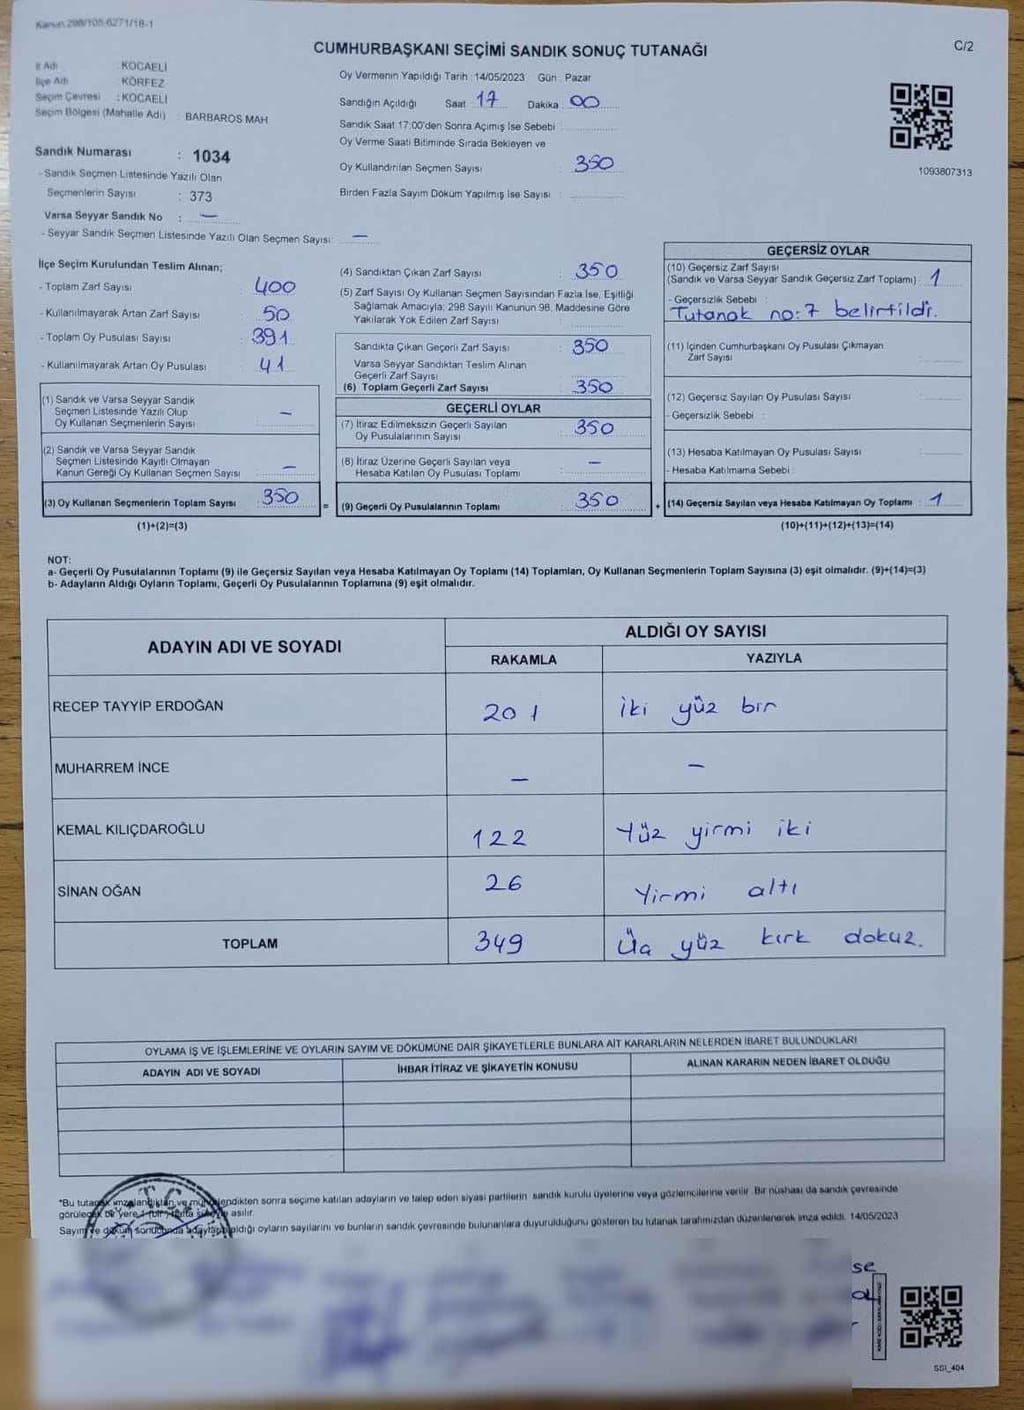 Kanun 298/105-6271/18-1
CUMHURBAŞKANI SEÇİMİ SANDIK SONUÇ TUTANAĞI
C/2
İl Adı : KOCAELİ
İlçe Adı : KÖRFEZ
Seçim Çevresi : KOCAELİ
Seçim Bölgesi (Mahalle Adı) : BARBAROS MAH
Sandık Numarası : 1034
- Sandık Seçmen Listesinde Yazılı Olan
Seçmenlerin Sayısı : 373
Varsa Seyyar Sandık No : —
- Seyyar Sandık Seçmen Listesinde Yazılı Olan Seçmen Sayısı: —
Oy Vermenin Yapıldığı Tarih : 14/05/2023 Gün : Pazar
Sandığın Açıldığı Saat : 17 Dakika : 00
Sandık Saat 17:00'den Sonra Açımış İse Sebebi :
Oy Verme Saati Bitiminde Sırada Bekleyen ve
Oy Kullandırılan Seçmen Sayısı : 350
Birden Fazla Sayım Döküm Yapılmış İse Sayısı :
1093807313
İlçe Seçim Kurulundan Teslim Alınan;
- Toplam Zarf Sayısı : 400
- Kullanılmayarak Artan Zarf Sayısı : 50
- Toplam Oy Pusulası Sayısı : 391
- Kullanılmayarak Artan Oy Pusulası : 41
(1) Sandık ve Varsa Seyyar Sandık
Seçmen Listesinde Yazılı Olup
Oy Kullanan Seçmenlerin Sayısı : —
(2) Sandık ve Varsa Seyyar Sandık
Seçmen Listesinde Kayıtlı Olmayan
Kanun Gereği Oy Kullanan Seçmen Sayısı : —
(3) Oy Kullanan Seçmenlerin Toplam Sayısı : 350
(1)+(2)=(3)
(4) Sandıktan Çıkan Zarf Sayısı : 350
(5) Zarf Sayısı Oy Kullanan Seçmen Sayısından Fazla İse, Eşitliği
Sağlamak Amacıyla; 298 Sayılı Kanunun 98. Maddesine Göre
Yakılarak Yok Edilen Zarf Sayısı :
Sandıkta Çıkan Geçerli Zarf Sayısı : 350
Varsa Seyyar Sandıktan Teslim Alınan
Geçerli Zarf Sayısı :
(6) Toplam Geçerli Zarf Sayısı : 350
GEÇERLİ OYLAR
(7) İtiraz Edilmeksizin Geçerli Sayılan
Oy Pusulalarının Sayısı : 350
(8) İtiraz Üzerine Geçerli Sayılan veya
Hesaba Katılan Oy Pusulası Toplamı : —
= (9) Geçerli Oy Pusulalarının Toplamı : 350
GEÇERSİZ OYLAR
(10) Geçersiz Zarf Sayısı
(Sandık ve Varsa Seyyar Sandık Geçersiz Zarf Toplamı) : 1
- Geçersizlik Sebebi :
Tutanak no:7 belirtildi.
(11) İçinden Cumhurbaşkanı Oy Pusulası Çıkmayan
Zarf Sayısı :
(12) Geçersiz Sayılan Oy Pusulası Sayısı :
- Geçersizlik Sebebi :
(13) Hesaba Katılmayan Oy Pusulası Sayısı :
- Hesaba Katılmama Sebebi :
+ (14) Geçersiz Sayılan veya Hesaba Katılmayan Oy Toplamı : 1
(10)+(11)+(12)+(13)=(14)
NOT:
a- Geçerli Oy Pusulalarının Toplamı (9) ile Geçersiz Sayılan veya Hesaba Katılmayan Oy Toplamı (14) Toplamları, Oy Kullanan Seçmenlerin Toplam Sayısına (3) eşit olmalıdır. (9)+(14)=(3)
b- Adayların Aldığı Oyların Toplamı, Geçerli Oy Pusulalarının Toplamına (9) eşit olmalıdır.
ADAYIN ADI VE SOYADI
ALDIĞI OY SAYISI
RAKAMLA YAZIYLA
RECEP TAYYİP ERDOĞAN 201 iki yüz bir
MUHARREM İNCE — —
KEMAL KILIÇDAROĞLU 122 Yüz yirmi iki
SİNAN OĞAN 26 Yirmi altı
TOPLAM 349 Üç yüz kırk dokuz.
OYLAMA İŞ VE İŞLEMLERİNE VE OYLARIN SAYIM VE DÖKÜMÜNE DAİR ŞİKAYETLERLE BUNLARA AİT KARARLARIN NELERDEN İBARET BULUNDUKLARI
ADAYIN ADI VE SOYADI İHBAR İTİRAZ VE ŞİKAYETİN KONUSU ALINAN KARARIN NEDEN İBARET OLDUĞU
*Bu tutanak imzalandıktan ve mühürlendikten sonra seçime katılan adayların ve talep eden siyasi partilerin sandık kurulu üyelerine veya gözlemcilerine verilir. Bir nüshası da sandık çevresinde
görülecek bir yere 1 (bir) hafta süreyle asılır.
Sayım ve döküm sonucunda adayların aldığı oyların sayılarını ve bunların sandık çevresinde bulunanlara duyurulduğunu gösteren bu tutanak tarafımızdan düzenlenerek imza edildi. 14/05/2023
T.C.
se
SSI_404